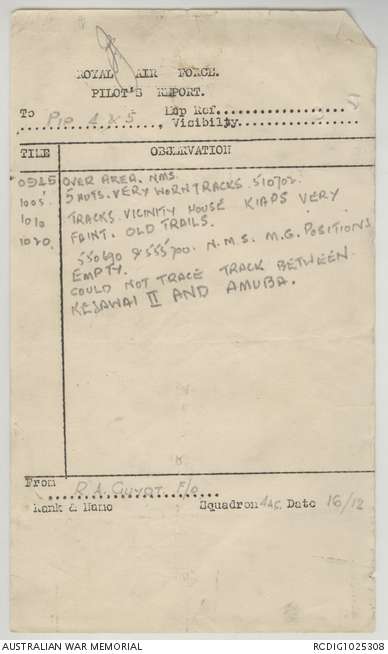 ROYAL AIR FORCE.
PILOT'S REPORT.
To Pip 4 & 5 Map Ref
, Visibilty
TIME OBSERVATION
0925 OVER AREA. NMS.
1005 5 HUTS. VERY WORN TRACKS. 510702.
1010 TRACKS VICINITY HOUSE KIAPS VERY
1020 FAINT. OLD TRAILS.
550690 & 555700. N.M.S. M.G. POSITIONS
EMPTY.
COULD NOT TRACE TRACK BETWEEN
KESAWAI II AND AMUBA.
From R A GUYOT F/O
Rank & Name Squadron 4 AC Date 16/12
AUSTRALIAN WAR MEMORIAL RCDIG1025308